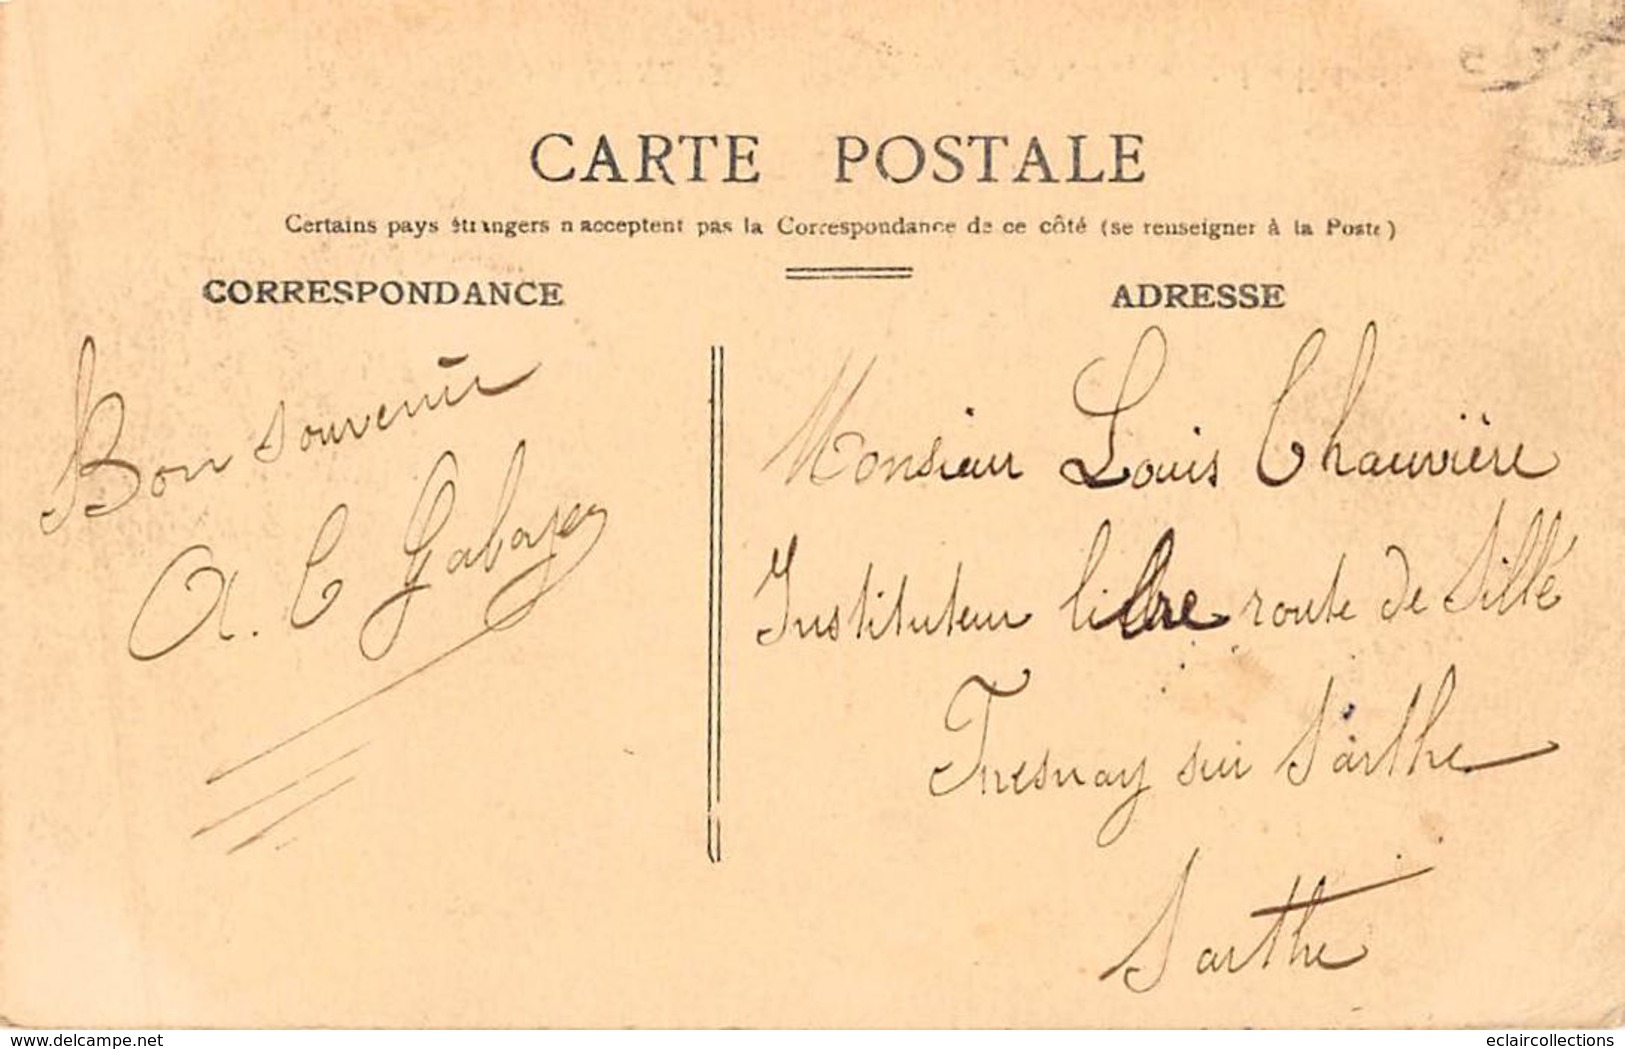 CARTE POSTALE
Certains pays étrangers n'acceptent pas la Correspondance de ce côté (se renseigner à la Poste)
CORRESPONDANCE
ADRESSE
Bon souvenir
A. C
Monsieur Louis Chauvière
Instituteur libre route de Sillé
Fresnay sur Sarthe
Sarthe
www.delcampe.net
eclaircollections